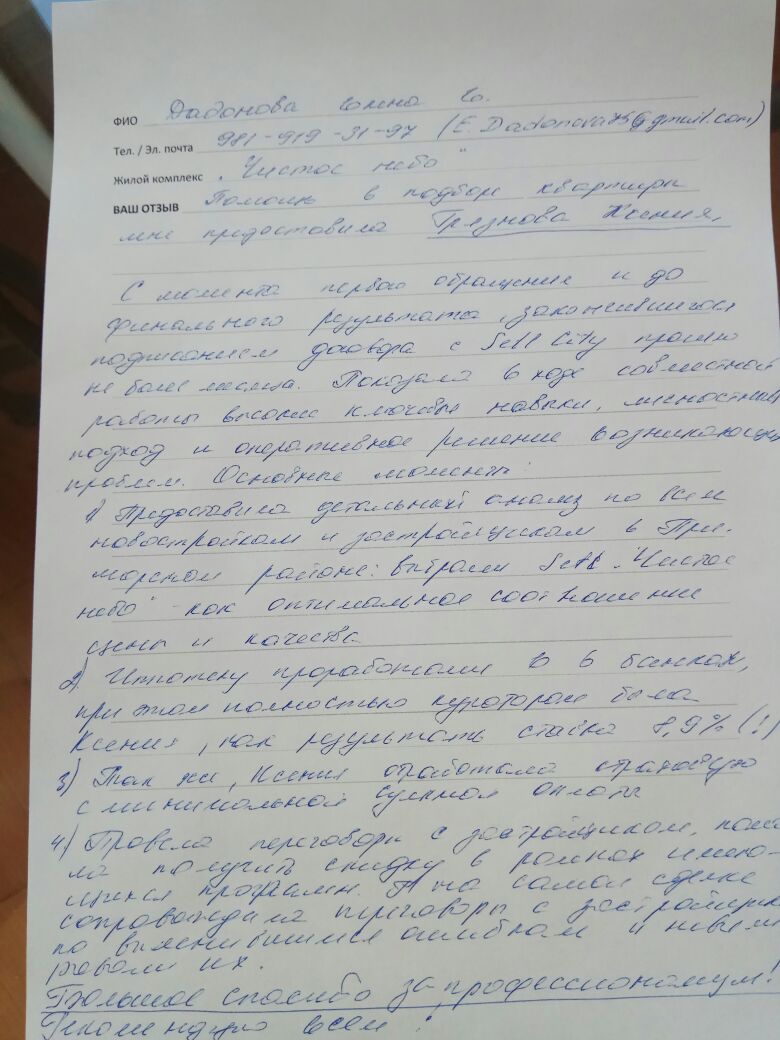 ФИО Дадонова Елена Е.
Тел. / Эл. почта 981-919-31-97 (E.Dadonova75@gmail.com)
Жилой комплекс „Чистое небо"
ВАШ ОТЗЫВ Помощь в подборе квартиры
мне предоставила Грязнова Ксения.
С момента первого обращения и до
финального результата, закончившегося
подписанием договора с Setl City прошло
не более месяца. Показала в ходе совместной
работы высокие ключевые навыки, личностный
подход и оперативное решение возникающих
проблем. Основные моменты:
1) Предоставила детальный анализ по всем
новостройкам и застройщикам в При-
морском районе: выбрали Setl „Чистое
небо" - как оптимальное соотношение
цены и качества
2) Ипотеку проработали в 6 банках,
при этом полностью куратором была
Ксения, как результат ставка 8,9% (!)
3) Так же, Ксения отработала страховую
с минимальной суммой оплаты
4) Провела переговоры с застройщиком, помог
ла получить скидку в рамках имею-
щихся программ. А на самой сделке
сопровождала переговоры с застройщик
по выяснившимся ошибкам и
их.
Большое спасибо за профессионализм!
Рекомендую всем!